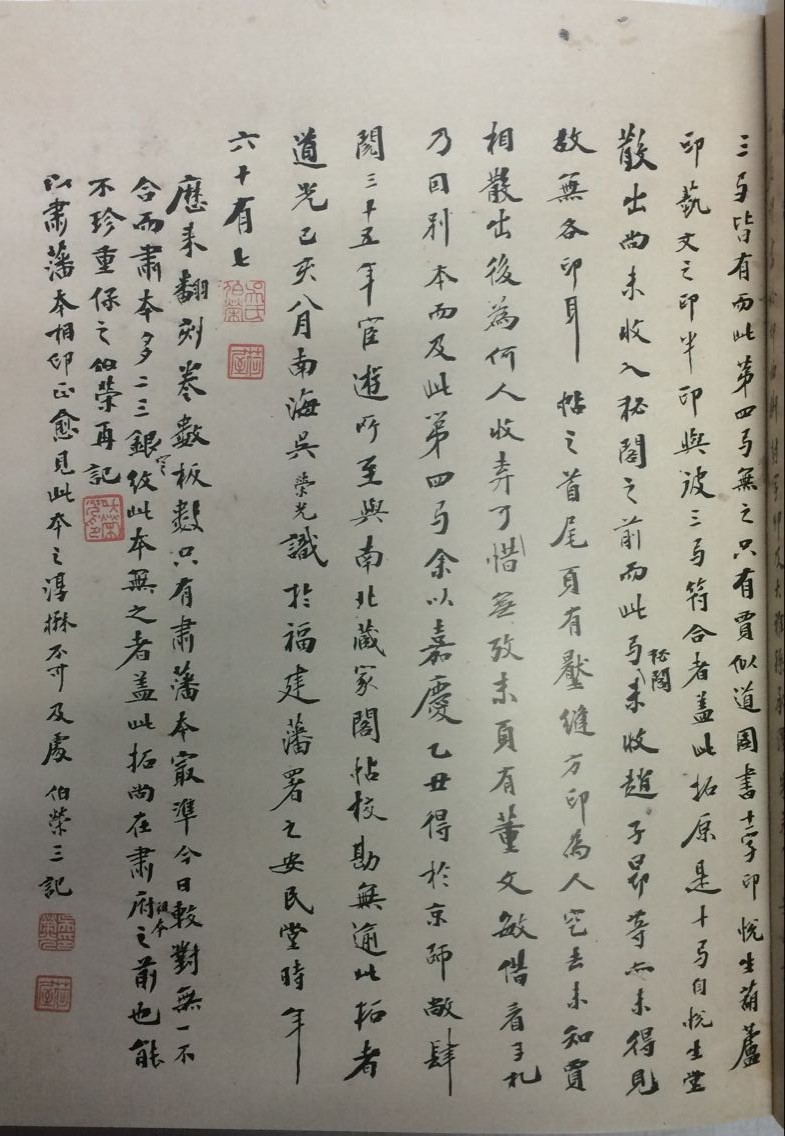 三馬皆有而此第四馬無之只有賈似道圖書十字印悅生葫蘆
印藝文之印半印與彼三馬符合者盖此拓原是十馬自悅生堂
散出尚未收入秘閣之前而此馬未收秘閣趙子昂等亦未得見
故無各印耳 帖之首尾頁有壓縫方印為人空去未知賈
相散出後為何人收弆可惜無攷末頁有董文敏借看手札
乃因別本而及此第四馬余以嘉慶乙丑得於京師敝肆
閱三十五年宦遊所至與南北藏家閣帖校勘無逾此拓者
道光己亥八月南海吳榮光識於福建藩署之安民堂時年
六十有七
歷來翻刻卷數板數只有肅藩本最準今日較對無一不
合而肅本多二三銀錠紋此本無之者盖此拓尚在肅府祖本之前也能
不珍重保之伯榮再記
以肅藩本相印正愈見此本之淳樸不可及處 伯榮三記